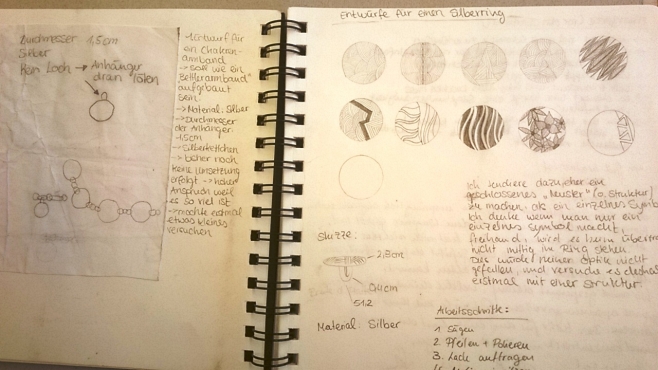 Durchmesser 1,5cm
Silber
Kein Loch → Anhänger
dran löten
-Entwurf für
ein Chakren-
armband
→ soll wie ein
"Bettelarmband"
aufgebaut
sein.
→ Material: Silber
→ Durchmesser
der Anhänger:
1,5cm
→ Silberkettchen
→ bisher noch
keine Umsetzung
erfolgt → hoher
Anspruch weil
es so viel ist
→ möchte erstmal
etwas kleines
versuchen
Entwürfe für einen Silberring
Ich tendiere dazu, eher ein
geschlossenes „Muster" (o. Struktur)
zu machen, als ein einzelnes Symbol
Ich denke wenn man nur ein
einzelnes Symbol macht,
freihand, wird es beim
nicht mittig im Ring stehen
Das würde meiner Optik nicht
gefallen, und versuche es
erstmal mit einer Struktur.
Skizze:
2,3cm
0,4cm
51,2
Material: Silber
Arbeitsschritte:
1. Sägen
2. Pfeilen + Polieren
3. Lack auftragen